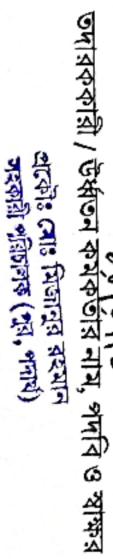 তদারককারী / উর্ধ্বতন কর্মকর্তার নাম, পদবি ও স্বাক্ষর
প্রকৌঃ মোঃ মিজানুর রহমান
সহকারী পরিচালক (পুর, পদার্থ)